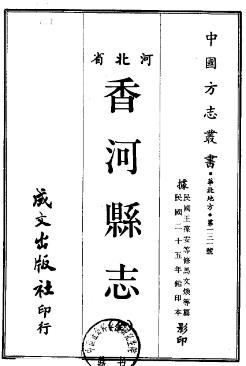 中國方志叢書·華北地方·第一三一號
據民國王葆安等修馬文煥等纂
民國二十五年鉛印本
影印
河北省
香河縣志
成文出版社印行